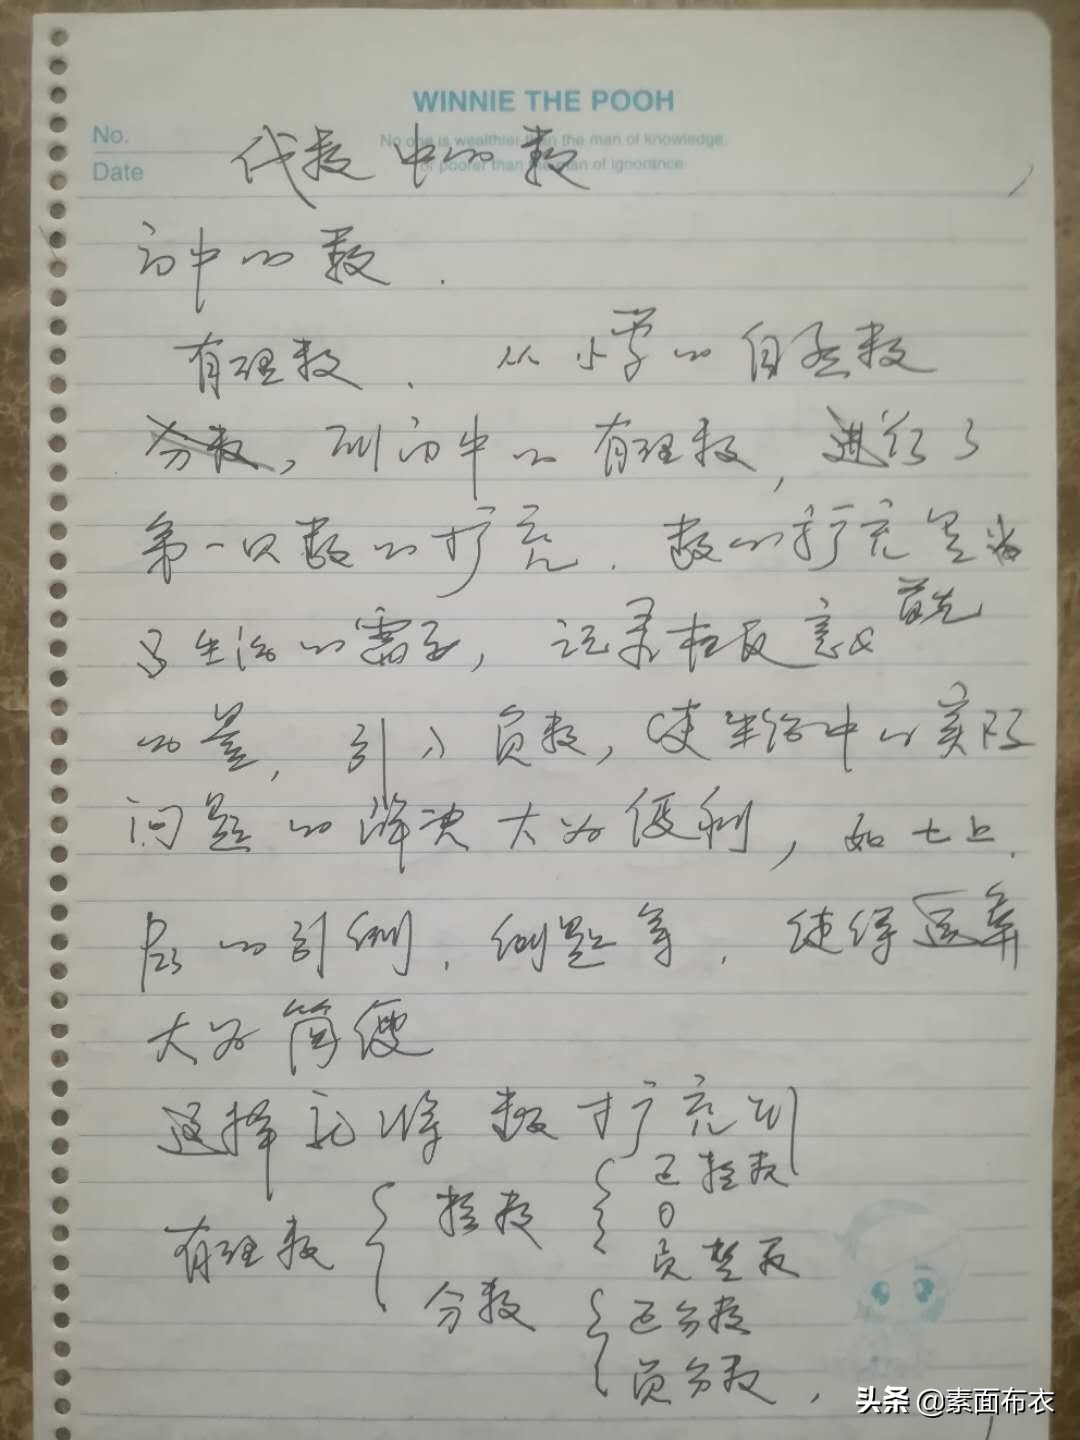 WINNIE THE POOH
No.
No one is wealthier than the man of knowledge,
Date
or poorer than the man of ignorance
代数中的数
初中的数.
有理数. 从小学的自然数
分数, 到初中的有理数, 进行了
第一次数的扩充. 数的扩充是为
了生活的需要, 记录相反意义 首先
的量, 引入负数, 使生活中的实际
问题的解决大为便利, 如七上.
P23的引例, 例题等, 使得运算
大为简便
这样就将数扩充到
有理数 { 整数 { 正整数
0
负整数
分数 { 正分数
负分数.
头条 @素面布衣